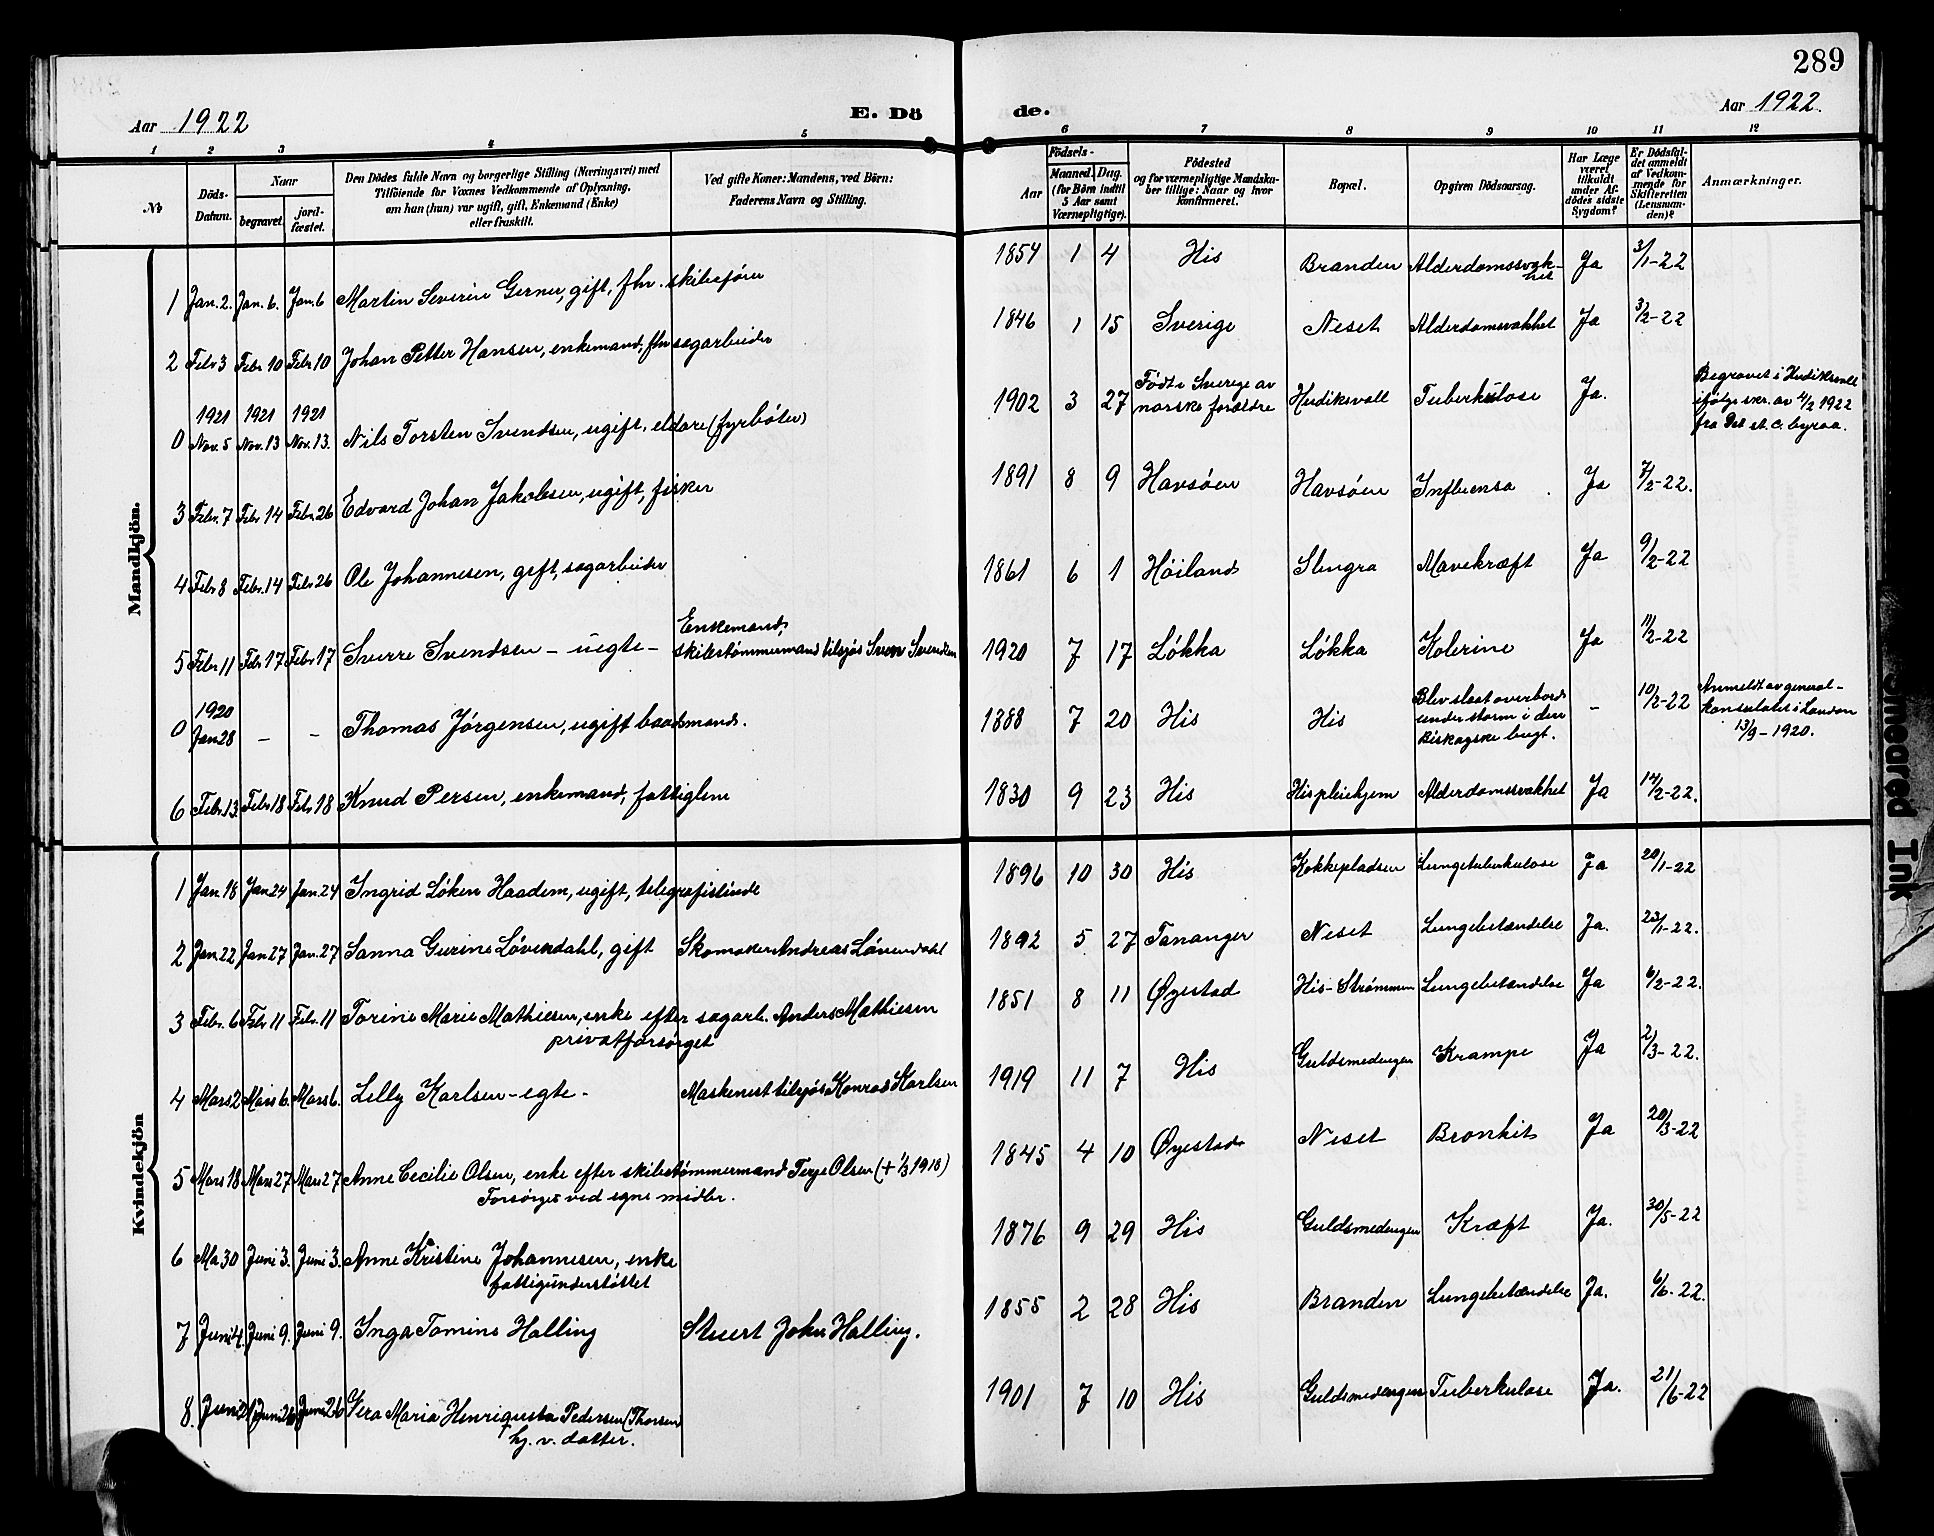 289
Aar 1922
E. Dö
de.
Aar 1922.
1 2 3 4 5 6 7 8 9 10 11 12
No
Döds-Datum.
Naar
begravet.
jord-fæstet.
Den Dödes fulde Navn og borgerlige Stilling (Næringsvei) med
Tilföiende for Voxnes Vedkommende af Oplysning,
om han (hun) var ugift, gift, Enkemand (Enke)
eller fraskilt.
Ved gifte Koner: Mandens, ved Börn:
Faderens Navn og Stilling.
Födsels-
Aar
Maaned. Dag.
(for Börn indtil
5 Aar samt
Værnepligtige).
Födested
og for værnepligtige Mandska-
ber tillige: Naar og hvor
konfirmeret.
Bopæl.
Opgiven Dödsaarsag.
Har Læge
været
tilkaldt
under Af-
dödes sidste
Sygdom?
Er Dödsfal-
det anmeldt
af Vedkom-
mende for
Skifteretten
(Lensman-
den)?
Anmærkninger.
Mandkjön.
1 Jan. 2. Jan. 6. Jan. 6 Martin Severin Gerner, gift, fhv. skibsfører 1854 1 4 His Branden Alderdomssvak-het Ja 3/1-22
2 Febr 3 Febr 10 Febr 10 Johan Petter Hansen, enkemand, fhv sagarbeider 1846 1 15 Sverige Neset Alderdomssvakhet Ja 3/2-22
0 1921 Nov. 5 1921 Nov. 13 1921 Nov. 13. Nils Torsten Svendsen, ugift, eldare (fyrbøter) 1902 3 27 Født i Sverige av norske forældre Hudiksvall Tuberkulose Ja. Begravet i Hudiksvall ifølge skr. av 4/2 1922 fra Det st. c. byraa.
3 Febr. 7 Febr 14 Febr. 26 Edvard Johan Jakobsen, ugift, fisker 1891 8 9 Havsøen Havsøen Influensa Ja 7/2-22.
4 Febr 8 Febr. 14 Febr 26 Ole Johannesen, gift, sagarbeider 1861 6 1 Høiland Slengra Mavekræft Ja 9/2-22
5 Febr 11 Febr 17 Febr 17 Sverre Svendsen - uegte - Enkemand, skibstømmermand tilsjøs Sven Svendsen 1920 7 17 Løkka Løkka Kolerine Ja 11/2-22
0 1920 Jan 28 - - Thomas Jørgensen, ugift baadsmand. 1888 7 20 His His Blev slaat overbord under storm i den Biskayske bugt. - 10/2-22 Anmeldt av general-konsulatet i London 13/9-1920.
6 Febr. 13 Febr 18 Febr 18 Knud Persen, enkemand, fattiglem 1830 9 23 His His pleiehjem Alderdomssvakhet Ja 14/2-22.
Kvindekjön
1 Jan. 18 Jan 24 Jan. 24 Ingrid Løken Haadem, ugift, telegrafistinde 1896 10 30 His Kokkepladsen Lungetuberkulose Ja 20/1-22
2 Jan. 22 Jan 27 Jan. 27 Sanna Gurine Løvendahl, gift Skomaker Andreas Løvendahl 1892 5 27 Tananger Neset Lungebetændelse Ja. 23/1-22.
3 Febr. 6 Febr 11 Febr. 11 Torine Marie Mathiesen, enke efter sagarb. Anders Mathiesen privatforsørget 1851 8 11 Øyestad His-Strømmen Lungebetændelse Ja 6/2-22.
4 Mars 2 Mars 6. Mars 6. Lilly Karlsen - egte - Maskinist tilsjøs Konrad Karlsen 1919 11 7 His Guldsmedengen Krampe Ja 2/3-22.
5 Mars 18 Mars 27 Mars 27 Anne Cecilie Olsen, enke efter skibstømmermand Terje Olsen (+ 1/3 1918) Forsørget ved egne midler. 1845 4 10 Øyestad Neset Bronkit Ja 20/3-22
6 Ma. 30 Juni 3. Juni 3. Anne Kristine Johannesen, enke fattigunderstøttet 1876 9 29 His Guldsmedengen Kræft Ja. 30/5-22
7 Juni 4. Juni 9. Juni 9. Inga Tomine Halling Stuert John Halling. 1855 2 28 His Branden Lungebetændelse Ja. 6/6-22.
8. Juni 21 Juni 26 Juni 26 Vera Maria Henriqusta Pedersen (Thorsen hj. v. datter. 1901 7 10 His Guldsmedengen Tuberkulose Ja. 21/6-22
Smeared Ink